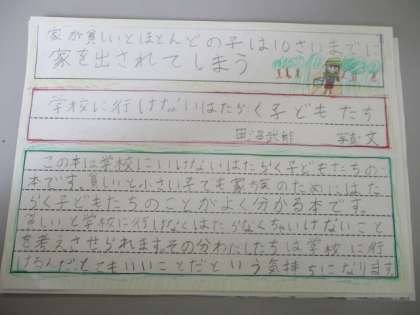 家が貧しいとほとんどの子は10さいまでに
家を出されてしまう
学校に行けないはたらく子どもたち
田沼武能 写真・文
この本は学校にいけないはたらく子どもたちの
本です。貧しいと小さい子でも家族のためにはた
らく子どもたちのことがよく分かる本です。
貧しいと学校に行けなくはたらなくちゃいけないこと
を考えさせられます。その分わたしたちは学校に行
けるんだ。とてもいいことだという気持ちになります